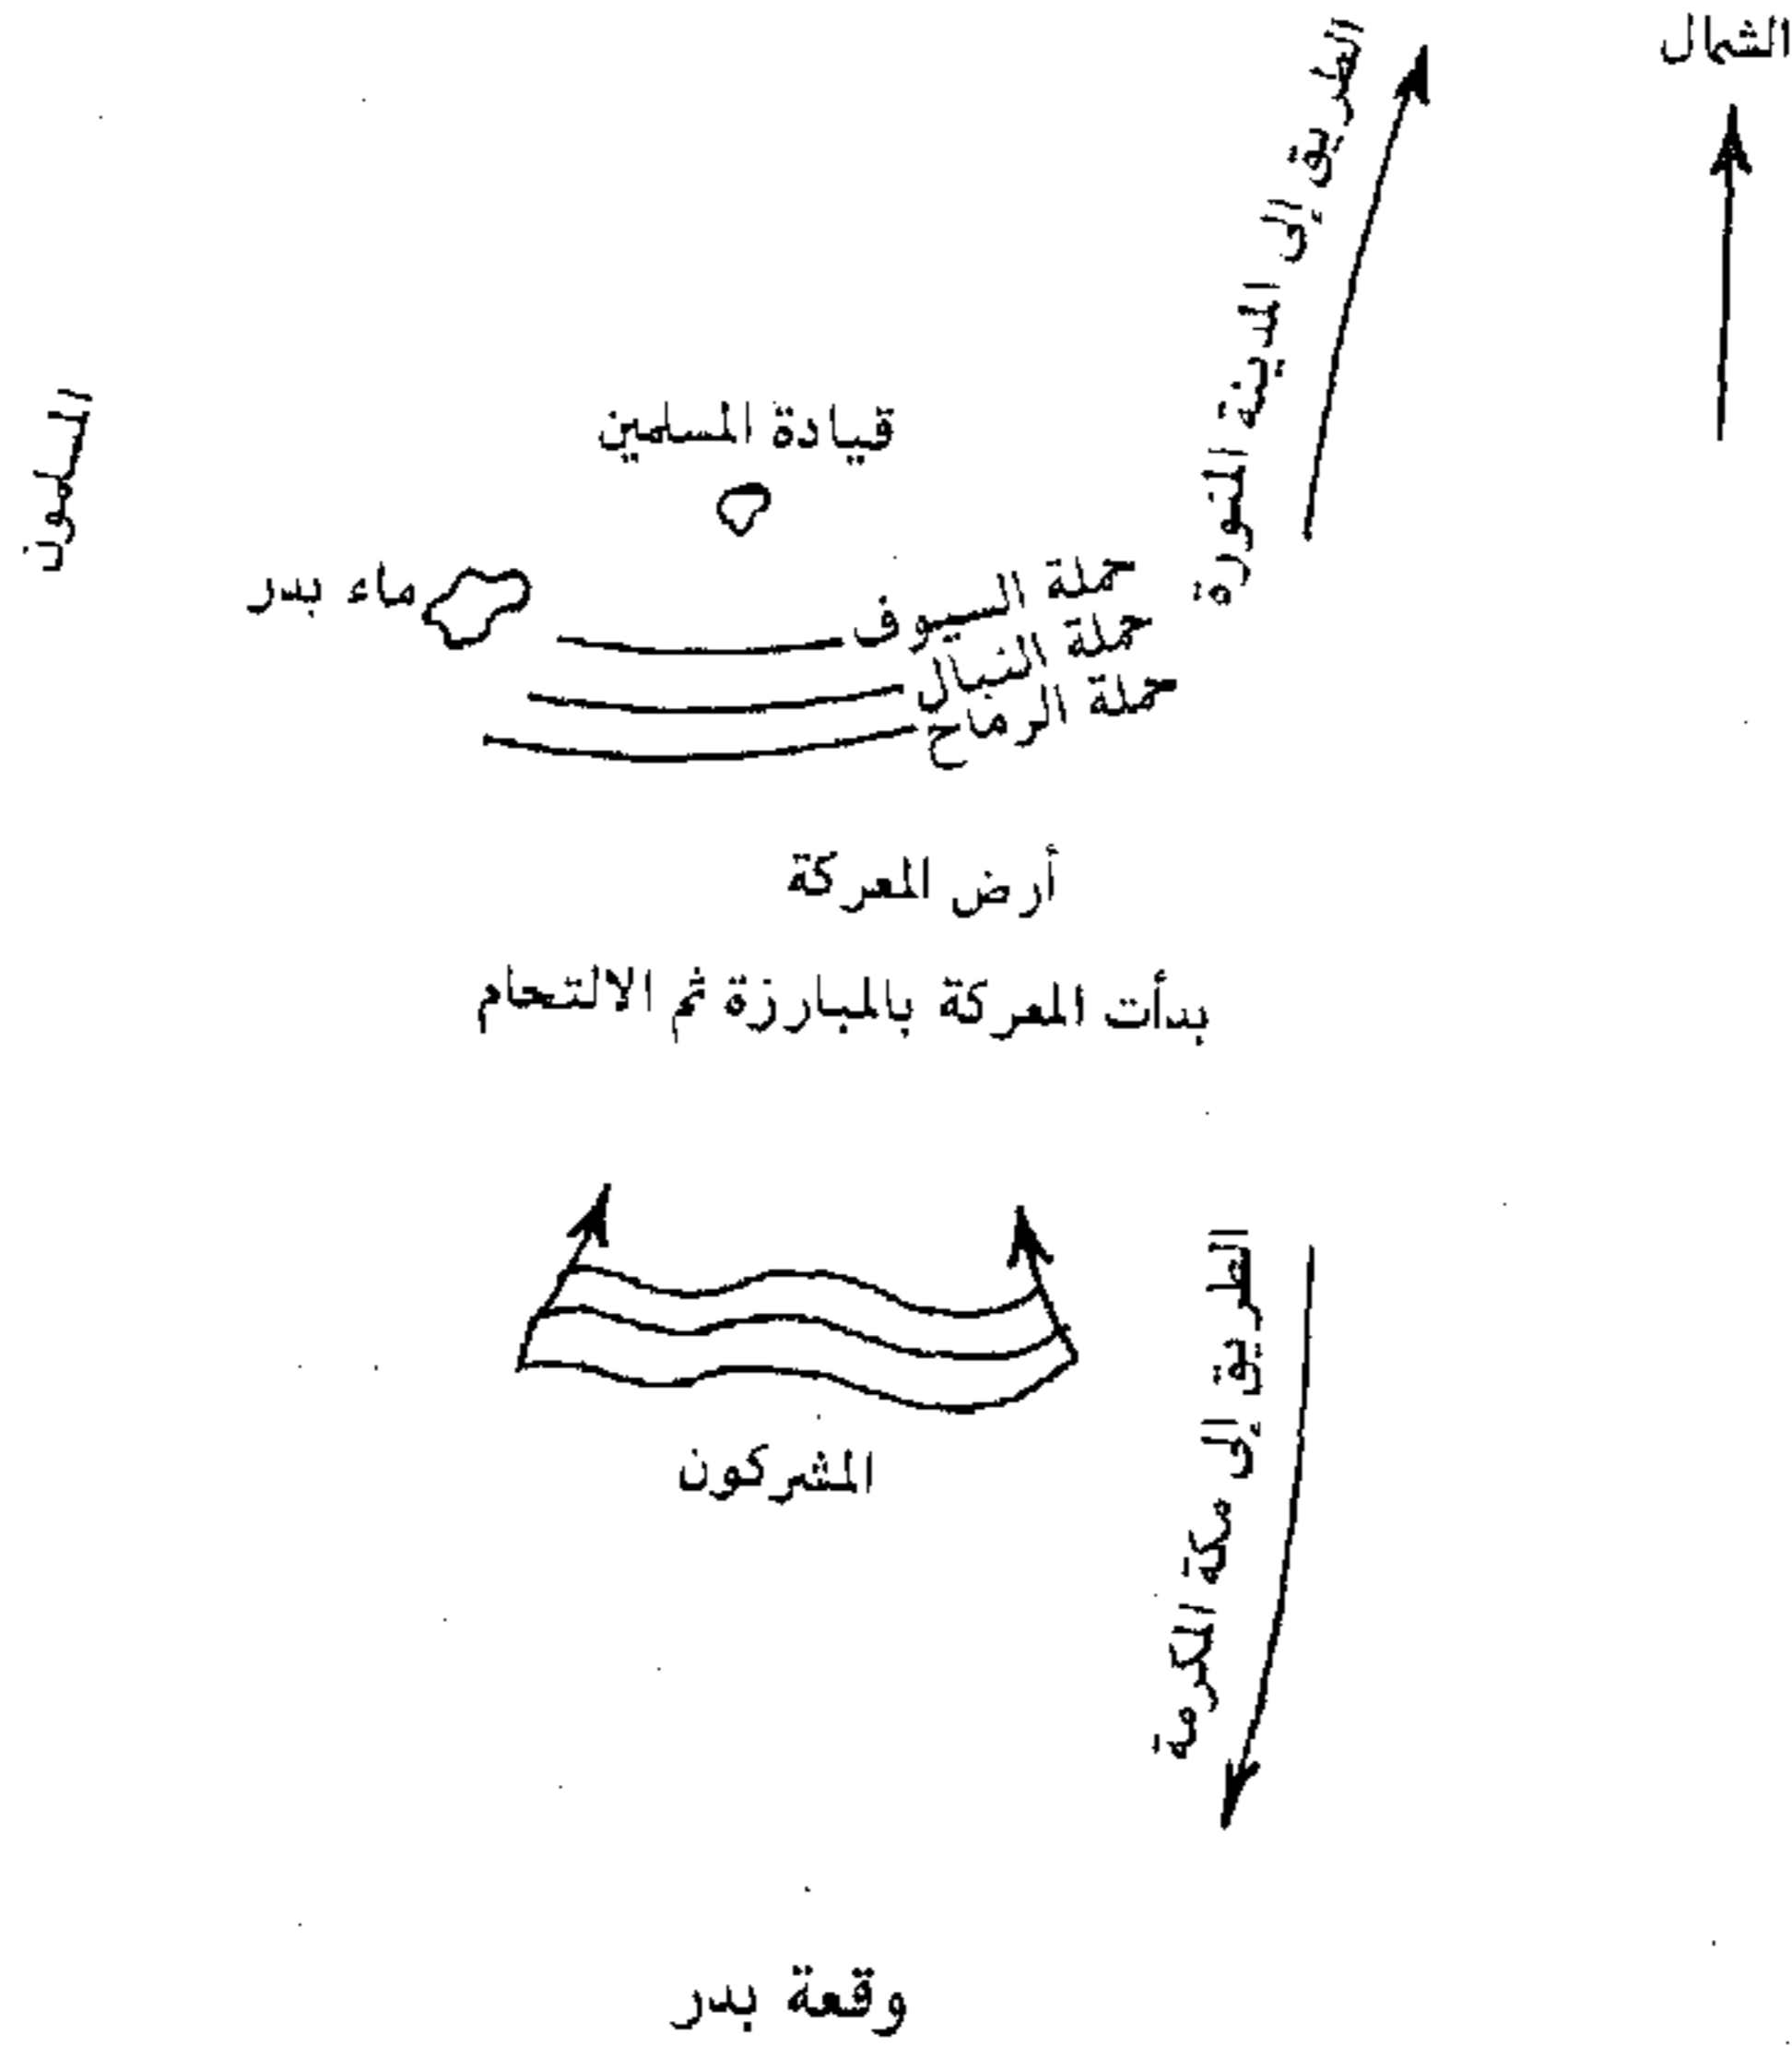 الشمال
الطريق إلى المدينة المنورة
المسلمون
قيادة المسلمين
ماء بدر
حملة السيوف
حملة النبال
حملة الرماح
أرض المعركة
بدأت المعركة بالمبارزة ثم الالتحام
المشركون
الطريق إلى مكة المكرمة
وقعة بدر